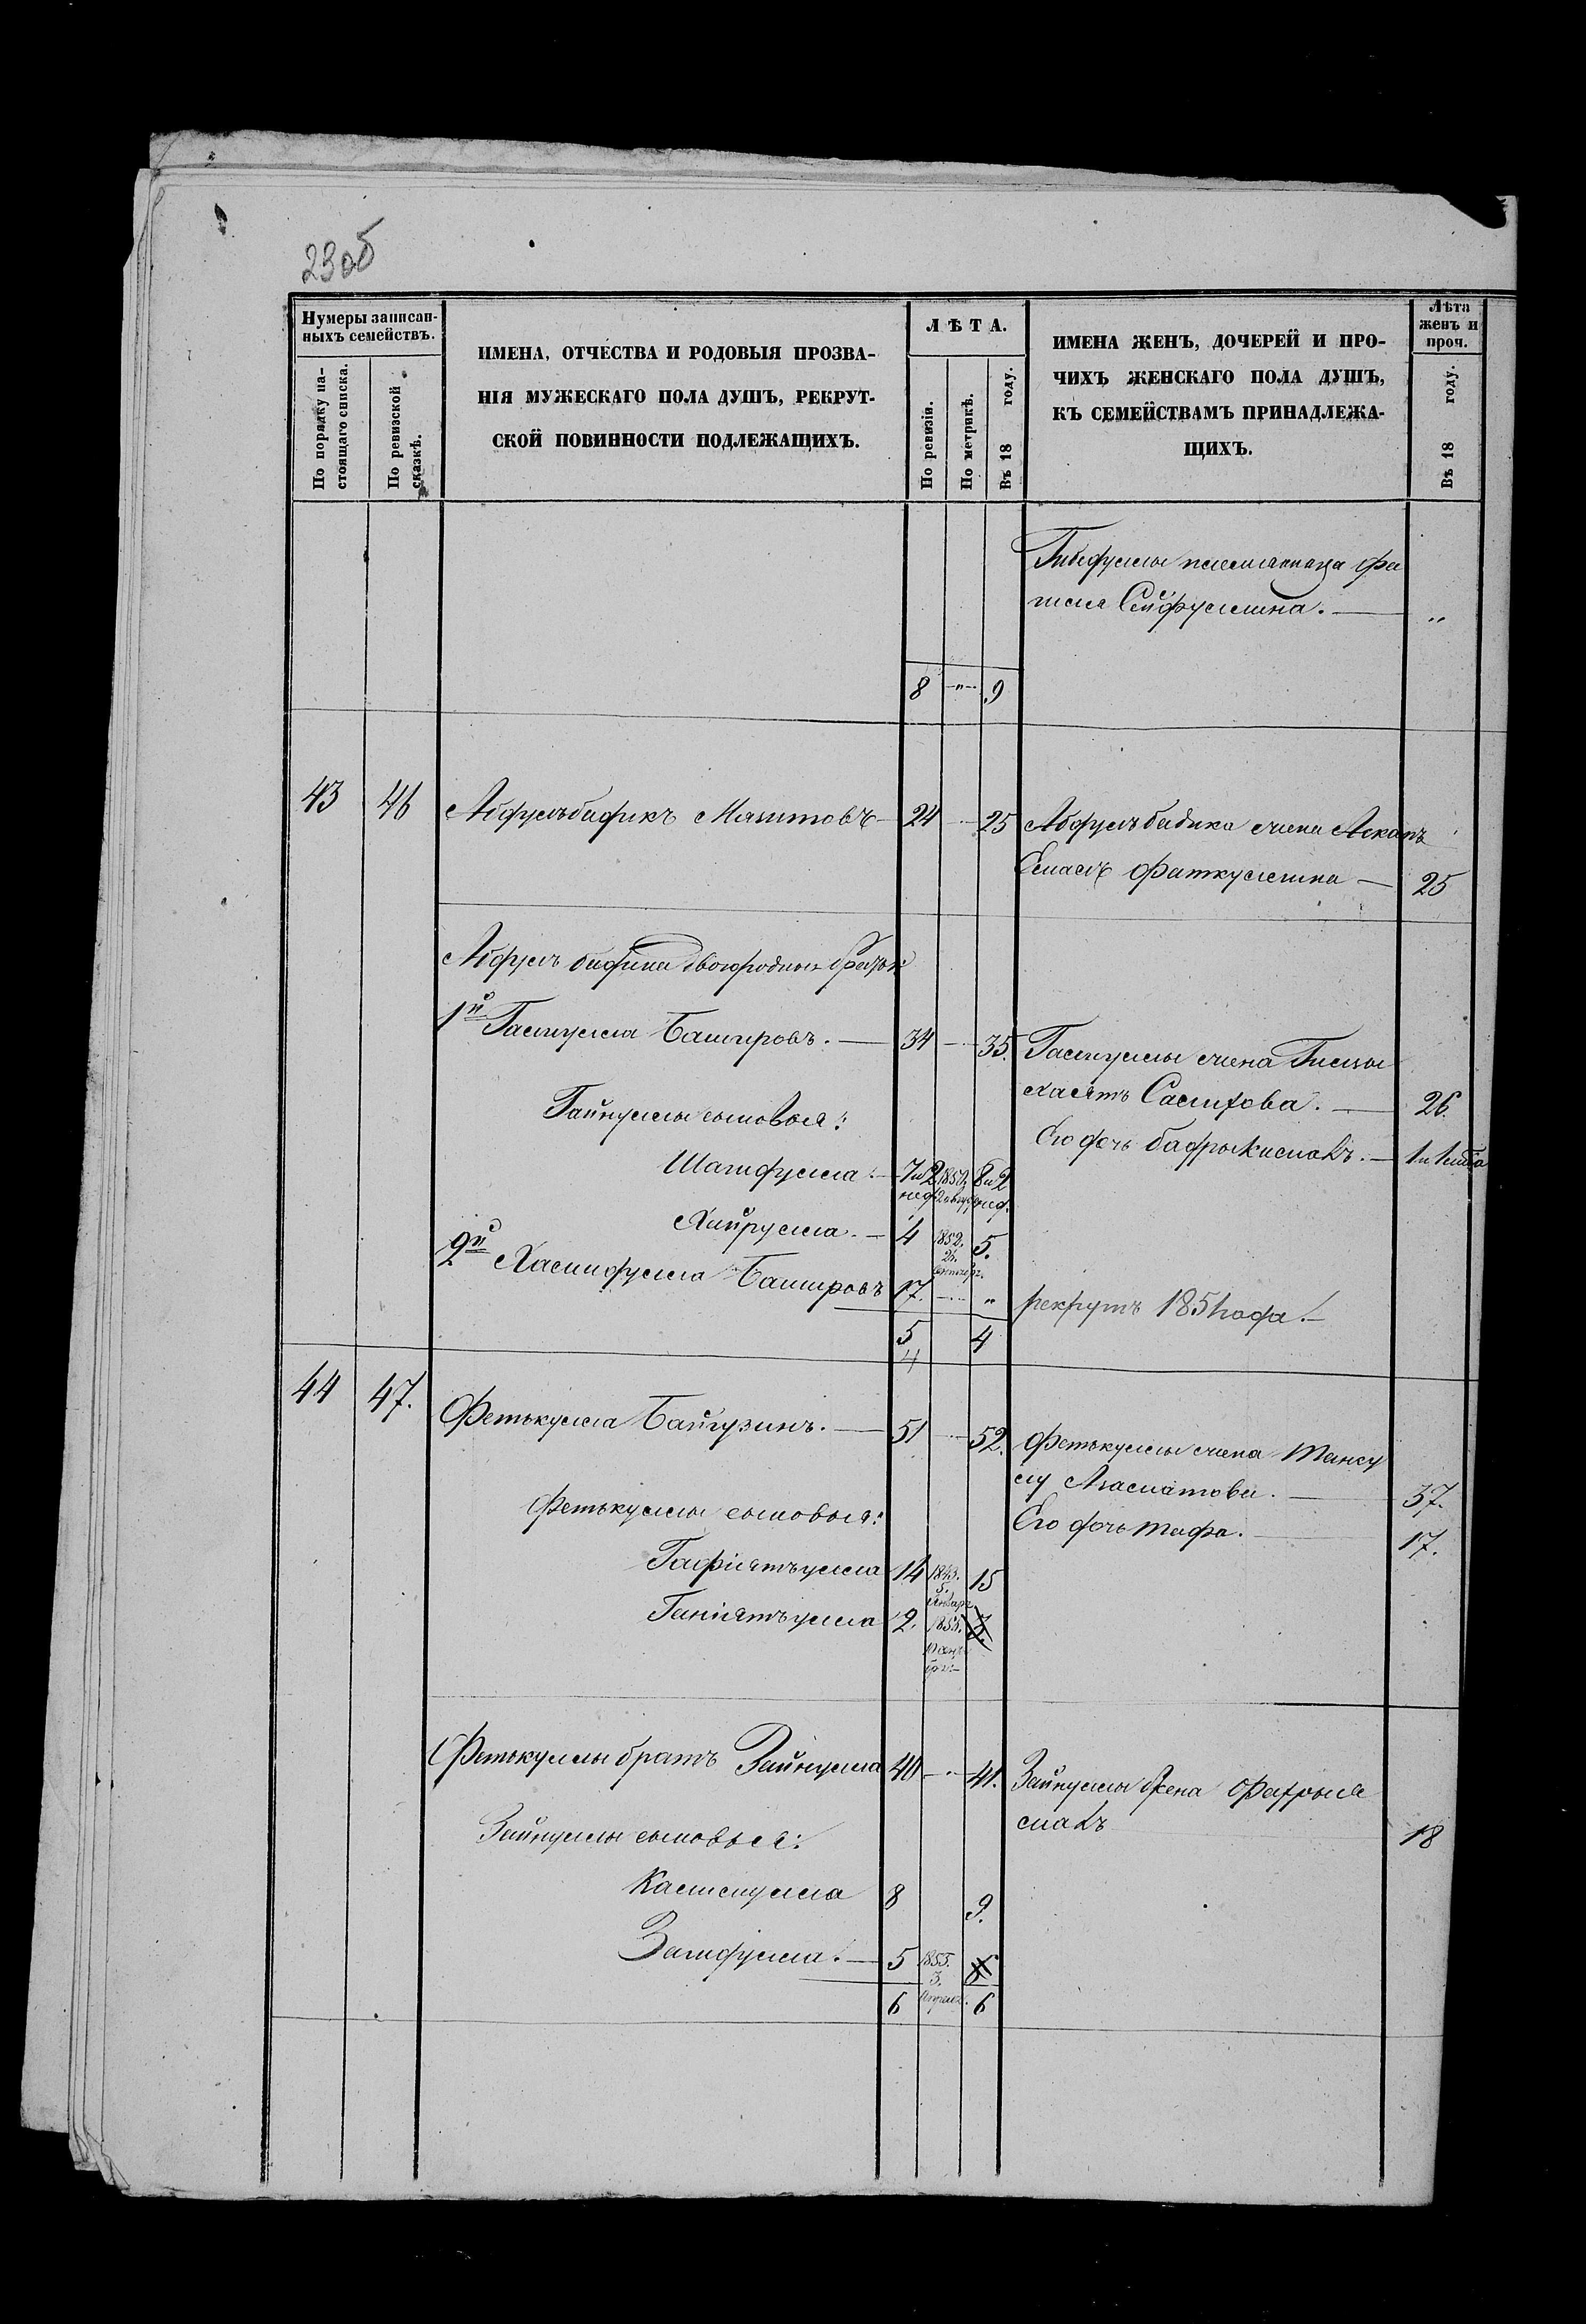 23об
Нумеры записан-
ныхъ семействъ.
По порядку на-
стоящаго списка.
По ревизской
сказкѣ.
ИМЕНА, ОТЧЕСТВА И РОДОВЫЯ ПРОЗВА-
НІЯ МУЖЕСКАГО ПОЛА ДУШЪ, РЕКРУТ-
СКОЙ ПОВИННОСТИ ПОДЛЕЖАЩИХЪ.
ЛѢТА.
По ревизіи.
По метрикѣ.
Въ 18 году.
ИМЕНА ЖЕНЪ, ДОЧЕРЕЙ И ПРО-
ЧИХЪ ЖЕНСКАГО ПОЛА ДУШЪ,
КЪ СЕМЕЙСТВАМЪ ПРИНАДЛЕЖА-
ЩИХЪ.
Лѣта
женъ и
проч.
Въ 18 году.
племянница
Сейфуллина. — "
8 — " — 9
43 46 Абдулъбадикъ Мазитовъ 24 — 25 Абдулъбадика жена
Фаткуллина — 25
Абдулъ бадика двоюродные братья
1й Гайнулла Башировъ. — 34 — 35. Гайнуллы жена
Салихова. — 26.
Гайнуллы сыновья:
Его дочь Бадрыкамалъ. — 1 и 1
Шагидулла — 7 и 2 нед. 1850. 8 и 2 нед.
Хайрулла. — 4 1852. 5.
2й Хамидулла Башировъ 17. — " рекрутъ 185 года.
5 4
4
44 47. Фетькулла Байгузинъ. — 51 — 52. Фетькуллы жена
37.
Фетькуллы сыновья:
Его дочь 17.
Гафіятъулла 14 1843. 5. Январ 15
Ганіятъулла 2. 1855. 3.
Фетькуллы братъ Зайнулла 40 — 41. Зайнуллы жена
малъ 18
Зайнуллы сыновья:
Калимулла 8 9.
Загидулла. — 5 1853. 3. Апреля. 6
6 6